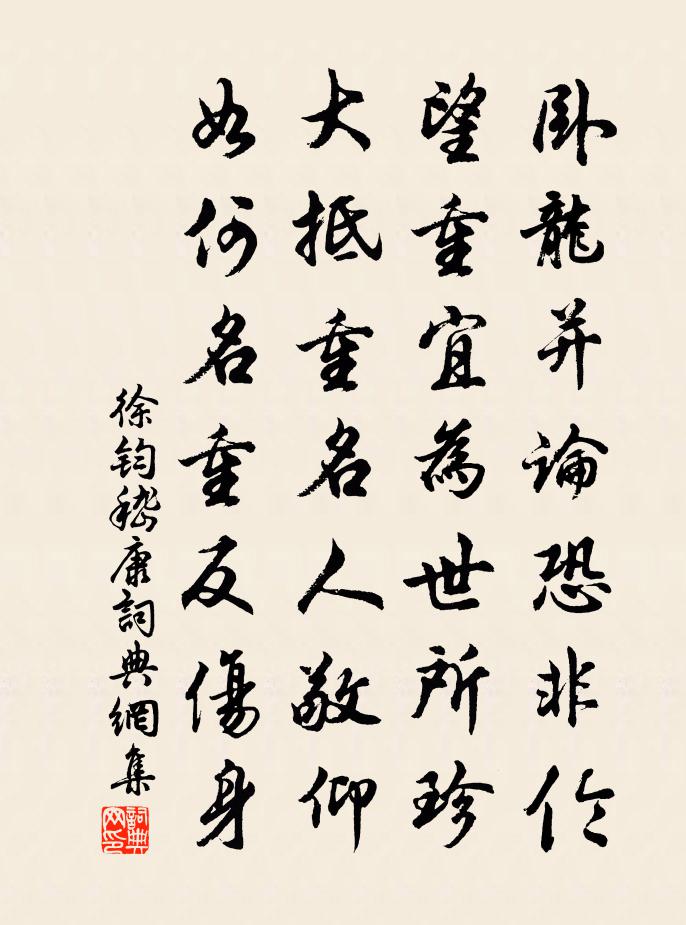 卧龍并論恐非伦
望重宜為世所珍
大抵重名人敬仰
如何名重反傷身
徐钧嵇康詞典網集
詞典
网印